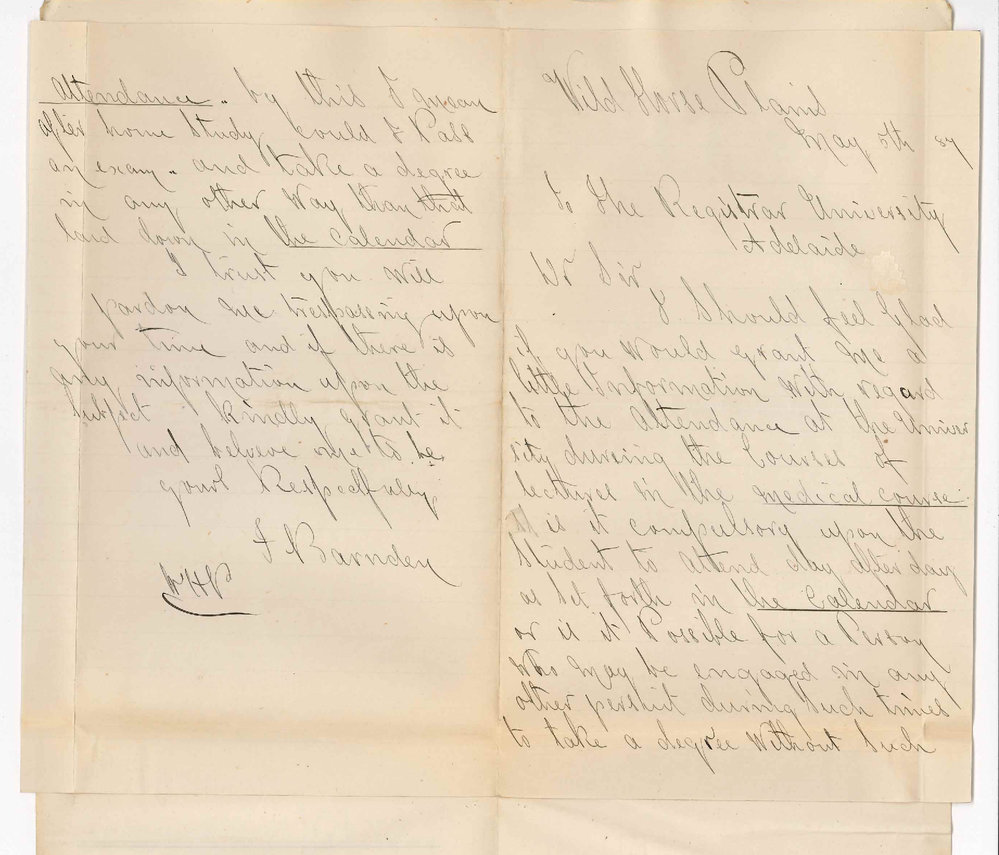 Wild Horse Plains
May 5th 87
To The Registrar University
Adelaide
Dr Sir
I Should feel Glad
if you would grant me a
little Information with regard
to the Attendance at the Univer
sity during the Courses of
lectures in the medical course.
is it compulsory upon the
Student to attend day after day
as set forth in the Calendar
or is it Possible for a Person
who may be engaged in any
other persuit during such times
to take a degree without such
attendance. by this I mean
after home study could I Pass
an exam. and take a degree
in any other way than that
laid down in the Calendar
I trust you will
pardon me trespassing upon
your time and if there is
any information upon the
subject kindly grant it
and beleive me to be
yours Respectfully
J Barnden
WHP